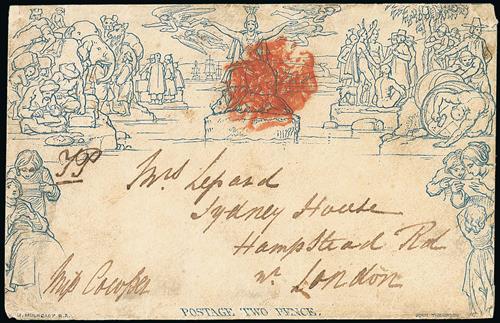 TP
Mrs Lepard
Sydney House
Hampstead Rd
nr London
Miss Cowper
W. MULREADY. R.A.
POSTAGE TWO PENCE.
JOHN THOMPSON